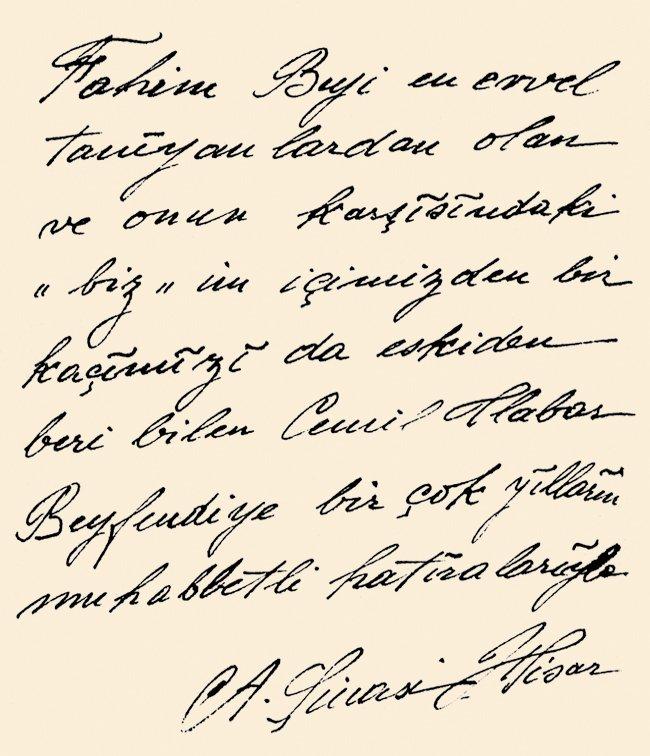 Fahim Beyi en evvel
tanīyanlardan olan
ve onun karşīsīndaki
"biz" im içimizden bir
kaçīmīzī da eskiden
beri bilen Cemil Habar
Beyfendiye bir çok yīllarīn
muhabbetli hatīralarīyla
A. Şinasi Hisar